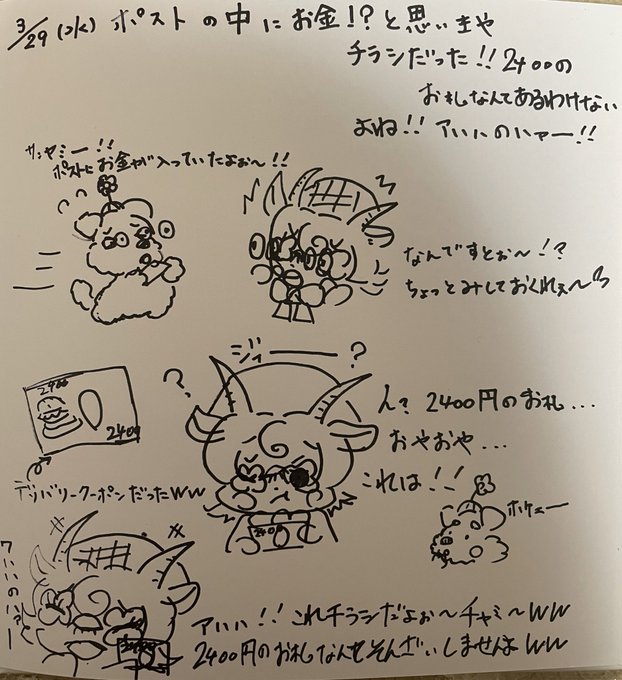 3/29(水) ポストの中にお金!?と思いきや
チラシだった!!2400の
お札なんてあるわけない
よね!!アハハのハァー!!
サンヤミー!!
ポストにお金が入っていたよぉ〜!!
なんですとぉ〜!?
ちょっとみしておくれぇ〜
ジィー ?
?
2400
2400
ん?2400円のお札...
おやおや...
これは!!
デリバリークーポンだったww
ホケェー
アハハ!!これチラシだよぉ〜チャミ〜ww
2400円のお札なんてそんざいしませんよww